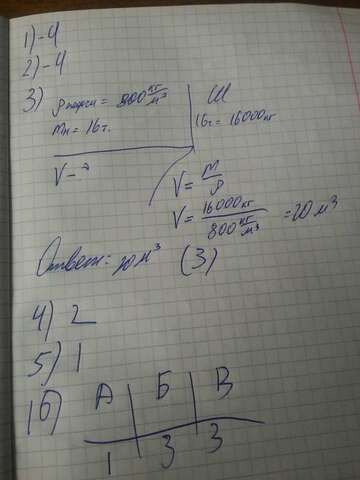 1) - 4
2) - 4
3) ρ нефти = 800 кг/м³
mн = 16т.
V - ?
СИ
16т = 16000кг
V = m/ρ
V = 16000кг / 800 кг/м³ = 20 м³
Ответ: 20 м³ (3)
4) 2
5) 1
16) А Б В
1 3 3